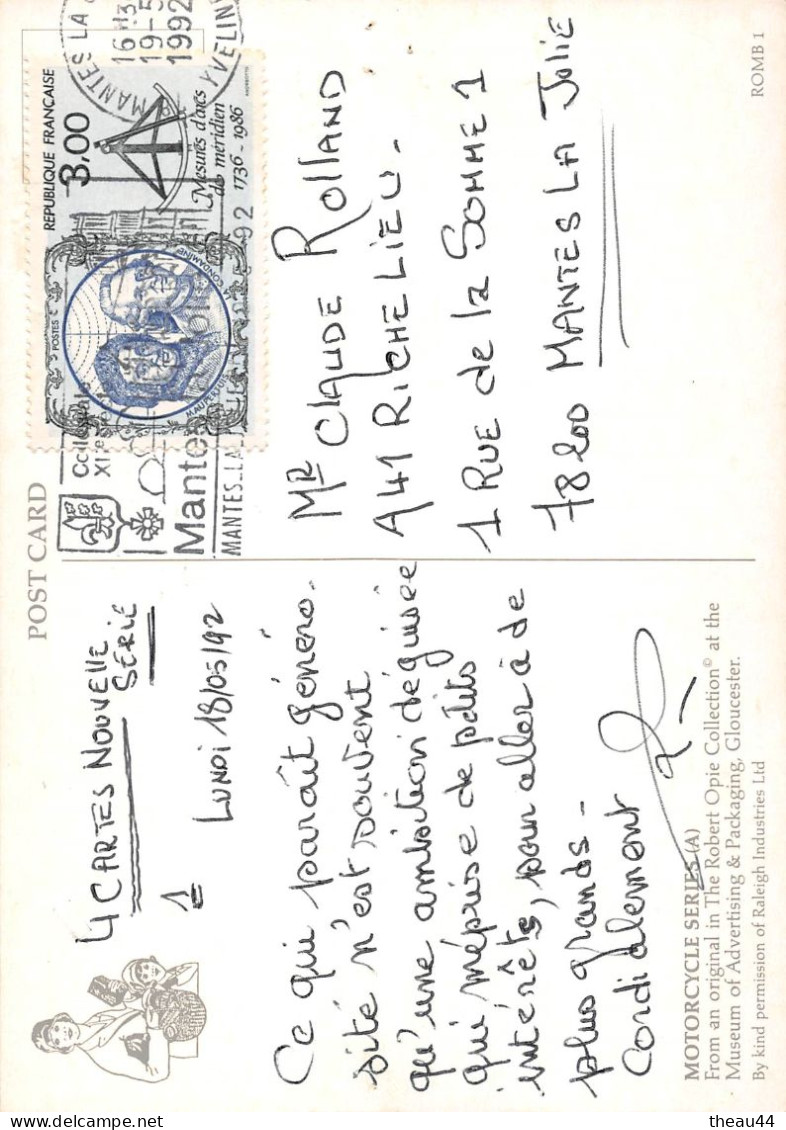 POST CARD
4 CARTES NOUVELLE
SÉRIE
1
LUNDI 18/05/92
Ce qui paraît généro-
sité n'est souvent
qu'une ambition déguisée
qui méprise de petits
intérêts, pour aller à de
plus grands -
Cordialement
MOTORCYCLE SERIES (A)
From an original in The Robert Opie Collection© at the
Museum of Advertising & Packaging, Gloucester.
By kind permission of Raleigh Industries Ltd
MANTES LA
16H3
19-5
1992
YVELINE
REPUBLIQUE FRANÇAISE
3,00
Mesures d'arcs
de méridien
1736-1986
POSTES
MAUPERTUIS
LA CONDAMINE
92
Mante
MANTES-LA-
MR Claude Rolland
A41 RICHELIEU -
1 RUE de la SOMME 1
78200 MANTES LA JOLIE
ROMB 1
delcampe.net
theau44